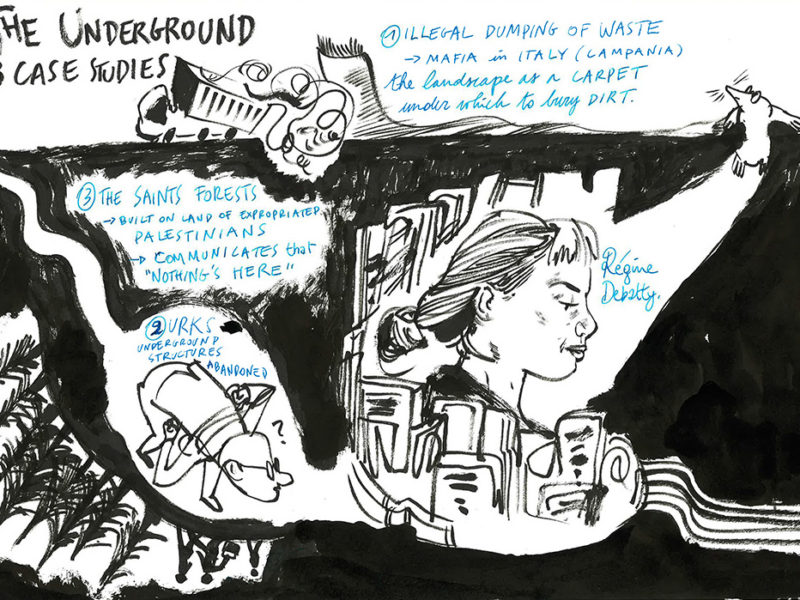 THE UNDERGROUND
3 CASE STUDIES
① ILLEGAL DUMPING OF WASTE
→ MAFIA in ITALY (CAMPANIA)
the landscape as a CARPET
under which to bury DIRT.
③ THE SAINTS FORESTS
→ BUILT ON LAND OF EXPROPRIATED
PALESTINIANS
→ COMMUNICATES that
"NOTHING'S HERE"
Régine
Debatty.
② URKS
UNDERGROUND
STRUCTURES
ABANDONED
?